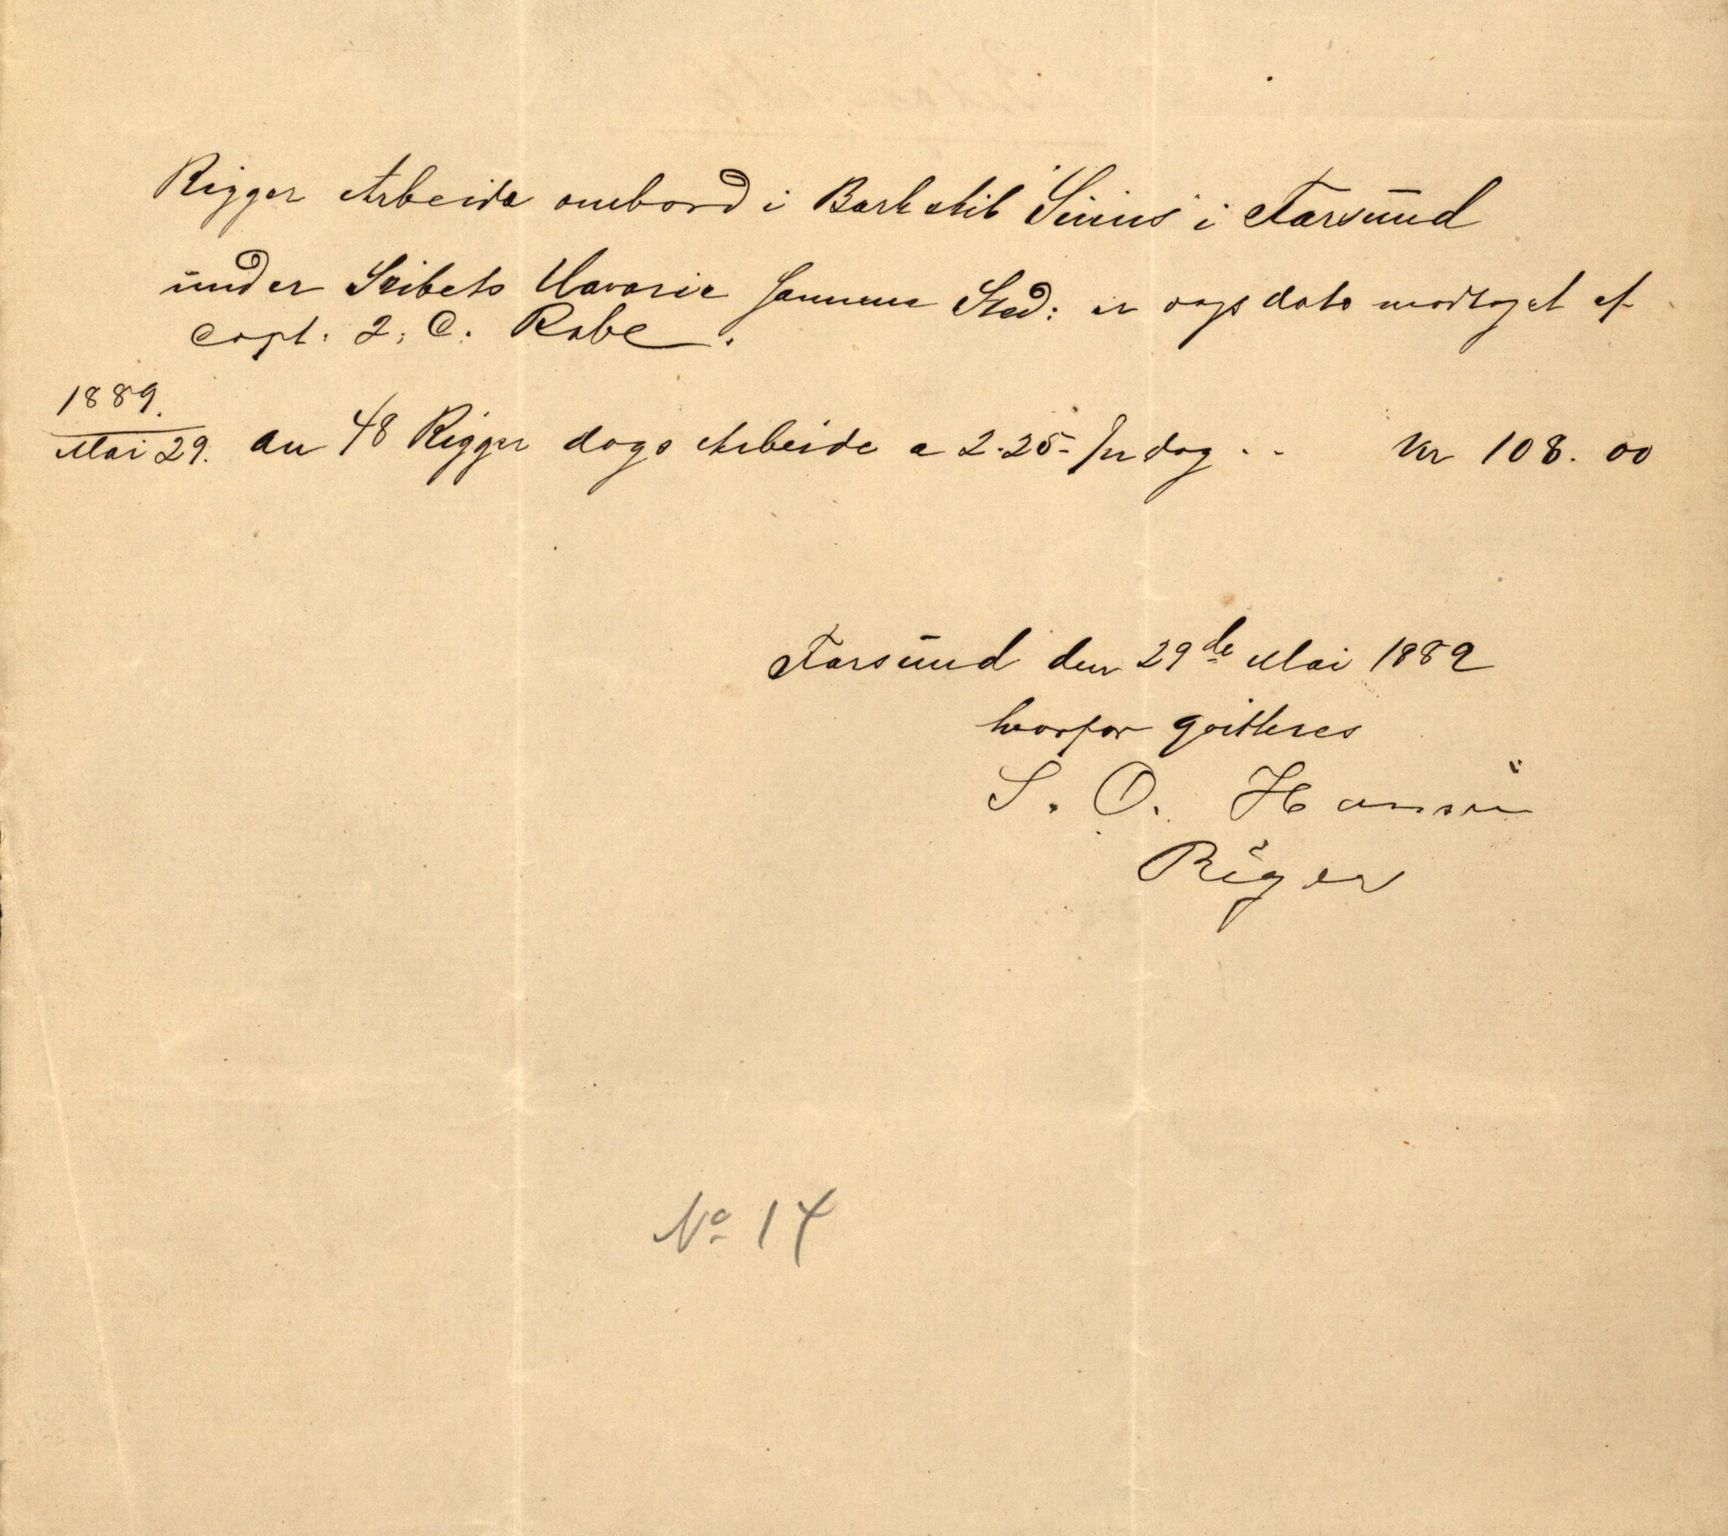 Rigger Arbeide ombord i Barkskib "Sirius" i Farsund
under Skibets Havarie samme Sted: er dags dato modtaget af
Capt. J. C. Rabe.
1889.
Mai 29. an 48 Rigger dags Arbeide a 2.25 - pr dag . . Kr 108.00
Farsund den 29de Mai 1889
hvorfor qvitteres
S. O. Hansen
Riger
No 14